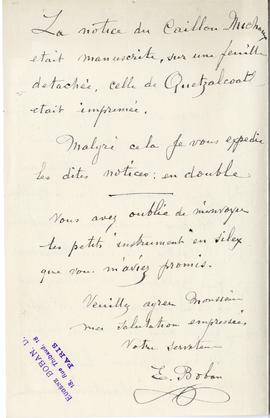 La notice du Caillou Michaux
etait manuscrite, sur une feuille
detachée, celle de Quetzalcoatl
etait imprimée.
Malgré cela Je vous expedie
les dites notices: en double
Vous avez oublié de m'envoyer
les petits instrument en silex
que vous m'aviez promis.
Veuillez agreer Monsieur
mes salutation empressées
Votre serviteur
E. Boban
EUGENE BOBAN, D.
18, Rue Thibaud, 18
PARIS